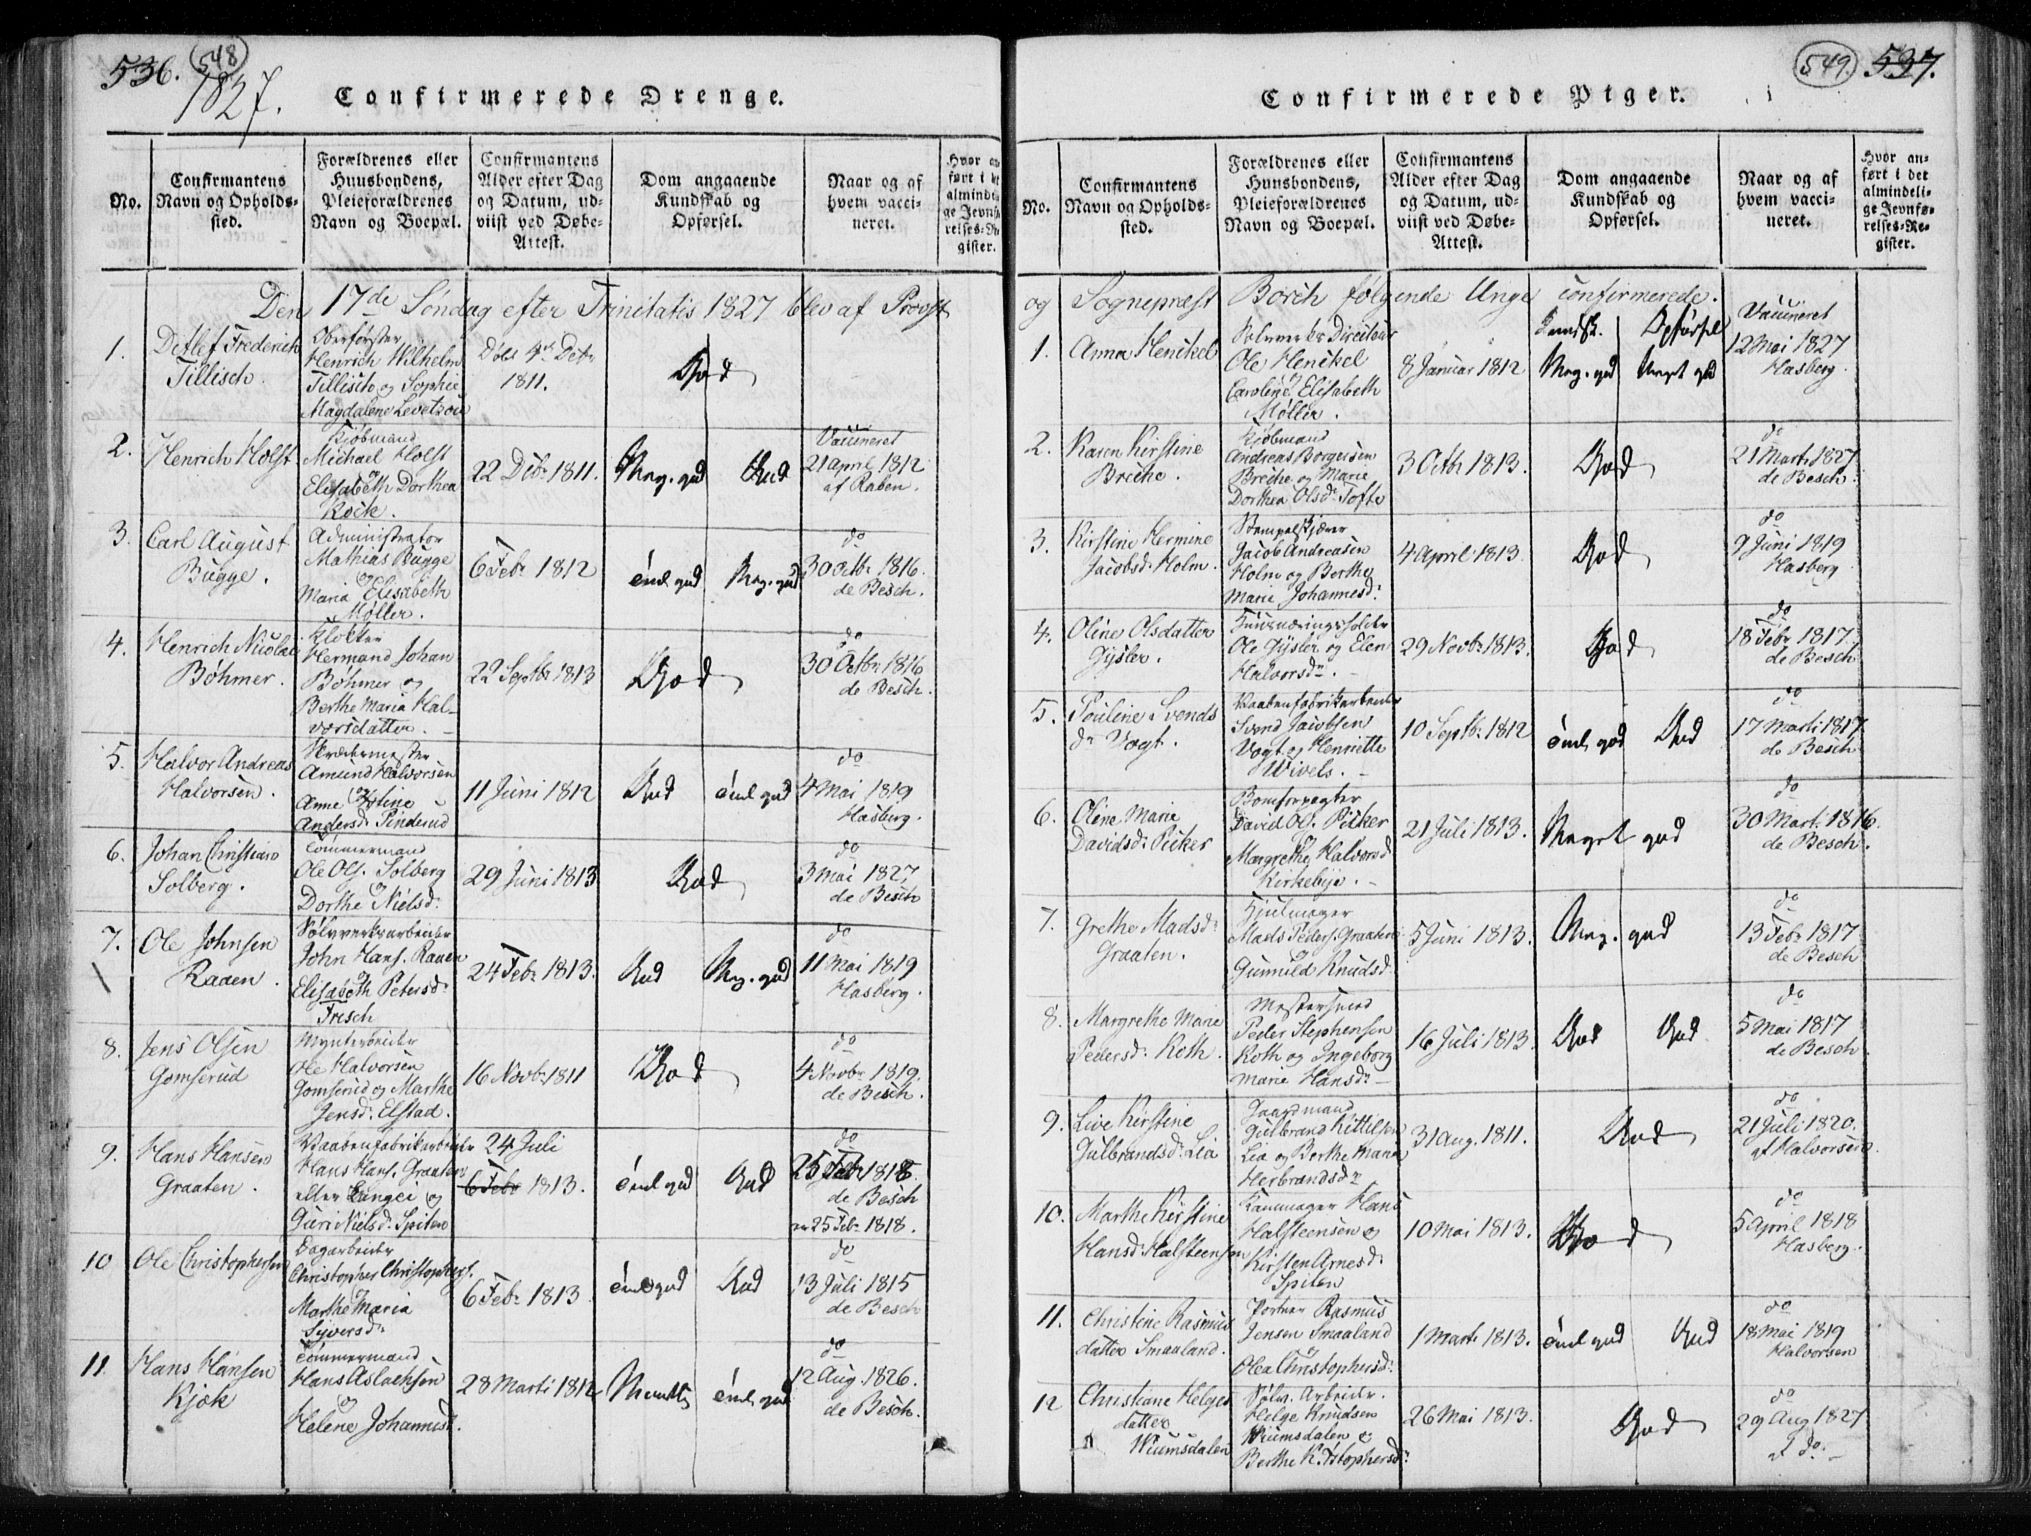 536. 548
1827.
Confirmerede Drenge.
No.
Confirmantens Navn og Opholdssted.
Forældrenes eller Huusbondens, Pleieforældrenes Navn og Boepæl.
Confirmantens Alder efter Dag og Datum, udviist ved Døbe-Attest.
Dom angaaende Kundskab og Opførsel.
Naar og af hvem vaccineret.
Den 17de Søndag efter Trinitatis 1827 blev af Provst
1.
Detlef Frederich
Tillisch.
Oberførster
Henrich Wilhelm
Tillisch og Sophie
Magdalene Levetzou
Døbt 4de Debr
1811.
God
2.
Henrich Holst
Kjøbmand
Michael Holst
og
Elisabeth Dorthea
Kock.
22 Debr 1811.
Meg. god
God
Vaccineret
21 April 1812
af Raben.
3.
Carl August
Bugge.
Administrator
Mathias Bugge
og
Maria Elisabeth
Møller.
6 Febr 1812
Meg. god
do
30 Octbr 1816.
de Besch.
4.
Henrich Nicolai
Bøhmer.
Klokker
Hermand Johan
Bøhmer og
Berthe Maria Hal-
vorsdatter.
22 Septbr 1813
God
do
30 Octbr 1816
de Besch.
5.
Halvor Andreas
Halvorsen.
Skrædermester
Amund Halvorsen
og
Anne Kistine
Andersd: Pinderud
11 Juni 1812
God
do
4 Mai 1819
Hasberg.
6.
Johan Christians
Solberg.
Tømmermand
Ole Ols. Solberg
og
Dorthe Nielsd:
29 Juni 1813
God
do
3 Mai 1827
de Besch
7.
Ole Johnsen
Raaen.
Sølvverksarbeider
John Hans. Raaen
og
Elisabeth Petersd:
Frisch
24 Febr 1813.
God
Meg. god
do
11 Mai 1819
Hasberg.
8.
Jens Olsen
Gomserud
Myntarbeider
Ole Halvorsen
Gomserud og Marthe
Jensd: Elstad.
16 Novbr 1811
God
do
4 Novbr 1819.
de Besch.
9.
Hans Hansen
Graaten.
Vaabenfabrikarbeider
Hans Hans. Graaten
eller Langei og
Guri Nielsd: Spiten
24 Juli
6 Febr 1813.
God
do
25 Febr 1818.
de Besch
25 Febr 1818.
10
Ole Christophersen
Dagarbeider
Christopher Christophers.
og
Marthe Maria
Syversdr
6 Febr 1813
God
do
13 Juli 1815
de Besch
11.
Hans Hansen
Kjøk
Tømmermand
Hans Aslachsen
og
Helene Johannesd.
28 Marti 1812
do
12 Aug. 1826.
de Besch.
549. 537.
Confirmerede Piger.
No.
Confirmantens Navn og Opholdssted.
Forældrenes eller Huusbondens, Pleieforældrenes Navn og Boepæl.
Confirmantens Alder efter Dag og Datum, udviist ved Døbe-Attest.
Dom angaaende Kundskab og Opførsel.
Naar og af hvem vaccineret.
Hvor anført i det almindelige Jevnførelses-Register.
og Sognepræst Borch følgende Unge confirmerede.
Kundsk. Opførsel
1.
Anna Henckel
Sølvverks Directeur
Ole Henckel
og
Caroline Elisabeth
Møller.
8 Januar 1812
Meg. god
Meget god
Vaccineret
12 Mai 1827
Hasberg
2.
Karen Kirstine
Breche.
Kjøbmand
Andreas Borgersen
Breche og Marie
Dorthea Olsd: Tofte
3 Octbr 1813.
God
do
21 Marti 1827
de Besch.
3.
Kirstine Hermine
Jacobsd: Holm.
Stempelskjærer
Jacob Andreasen
Holm og Berthe
Marie Johannesd:
4 April 1813
God
do
9 Juni 1819
Hasberg
4.
Oline Olsdatter
Gysler.
Huusnæringsholder
Ole Gysler og Elen
Halvorsdr.
29 Novbr 1813.
God
do
18 Febr 1817.
de Besch
5.
Pouline Svends
dr Vogt.
Vaabenfabrikarbeider
Svend Jacobsen
Vogt og Henriette
Wivels.
10 Septbr 1812
God
do
17 Marti 1817
de Besch
6.
Oline Marie
Davidsd: Picker
Bomforpagter
David Ols. Picker
og
Margrethe Halvorsd
Kirkebye.
21 Juli 1813.
Meget god
do
30 Marti 1816.
de Besch.
7.
Grethe Madsd:
Graaten.
Hjulmager
Mads Peders. Graaten
og
Gunnild Knudsd.
5 Juni 1813.
Meg. god
do
13 Febr 1817
de Besch
8.
Margrethe Marie
Pedersd: Koth.
Mestersmed
Peder Stephensen
Koth og Ingeborg
Marie Hansdr
16 Juli 1813.
God
God
do
5 Mai 1817
de Besch.
9.
Live Kirstine
Gulbrandsd: Lia
Gaardmand
Gulbrand Kittilsen
Lia og Berthe Maria
Herbrandsdr
31 Aug. 1811.
God
do
21 Juli 1820.
af Halvorsen
10.
Marthe Kirstine
Hansd: Halsteensen
Kammager Hans
Halsteensen og
Kirsten Arnesd:
Spiten
10 Mai 1813.
God
do
5 April 1818
Hasberg.
11.
Christine Rasmus
datter Smaaland.
Portner Rasmus
Jensen Smaaland
og
Olea Christophersd:
1 Marti 1813.
God
do
18 Mai 1819
Halvorsen
12
Christiane Helges
datter
Wiumsdalen
Sølvv. Arbeider.
Helge Knudsen
Wiumsdalen og
Berthe Kristophersd:
26 Mai 1813.
God
do
29 Aug 1827
af do.